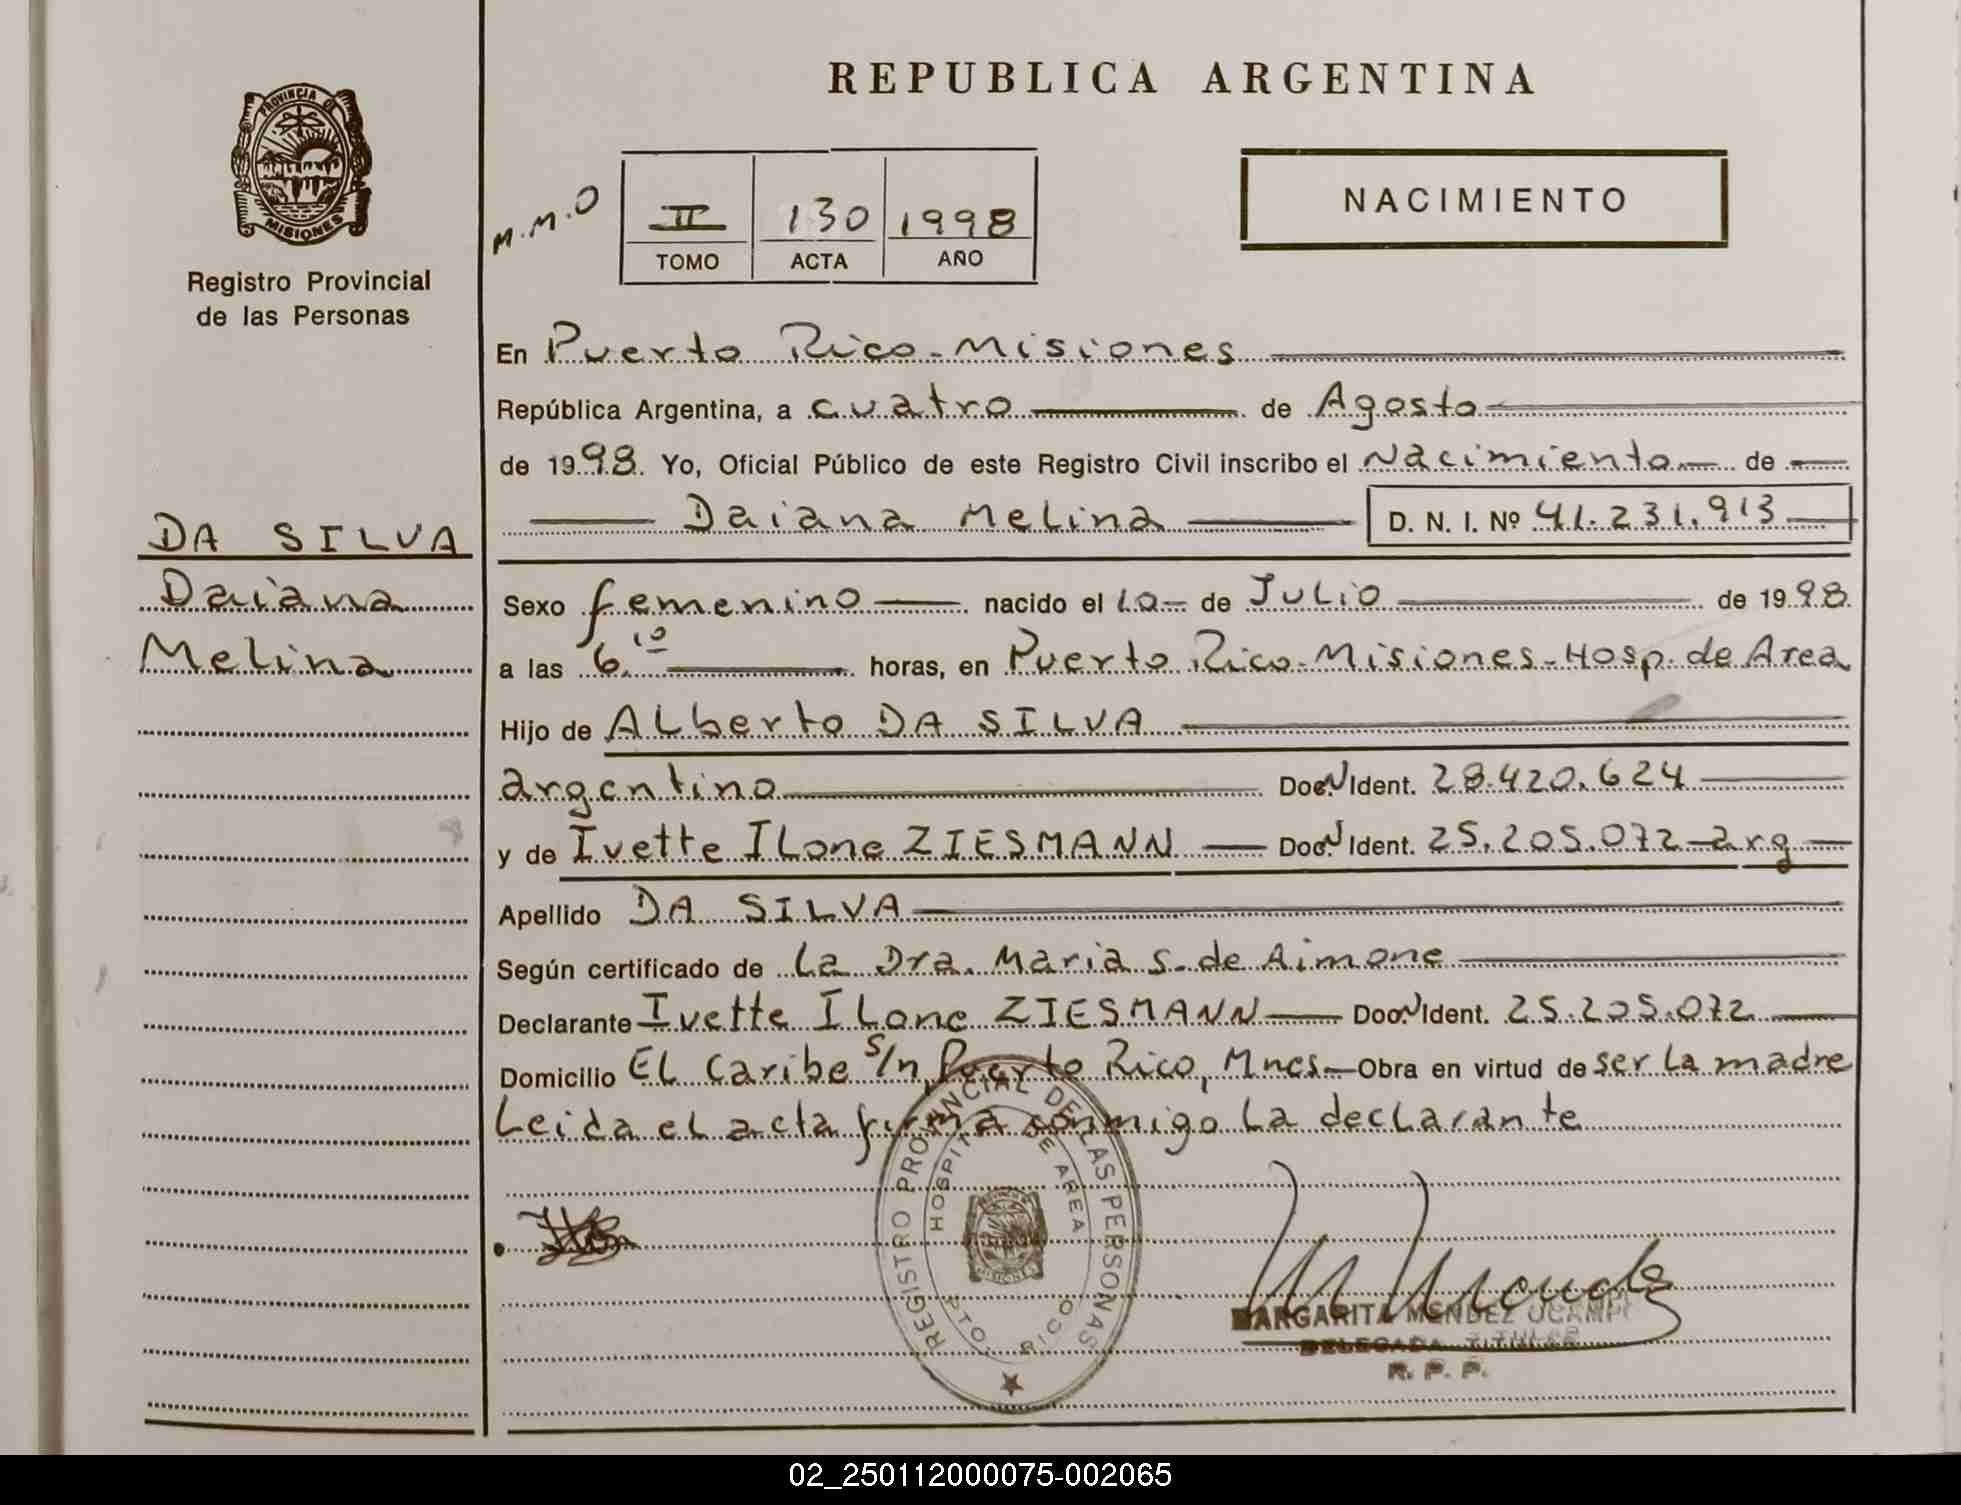 PROVINCIA DE
MISIONES
Registro Provincial
de las Personas
REPUBLICA ARGENTINA
M.M.O
II 130 1998
TOMO ACTA AÑO
NACIMIENTO
En Puerto Rico - Misiones
República Argentina, a cuatro de Agosto
de 1998. Yo, Oficial Público de este Registro Civil inscribo el Nacimiento de
Daiana Melina D. N. I. Nº 41.231.913
DA SILVA
Daiana
Melina
Sexo femenino nacido el 10 de JULIO de 1998
a las 6.10 horas, en Puerto Rico - Misiones - Hosp. de Area
Hijo de Alberto DA SILVA
argentino Doc. N Ident. 28.420.624
y de Ivette ILone ZIESMANN Doc. N Ident. 25.205.072 - arg
Apellido DA SILVA
Según certificado de La Dra. Maria S. de Aimone
Declarante Ivette ILone ZIESMANN Doc. N Ident. 25.205.072
Domicilio EL Caribe s/n, Puerto Rico, Mnes - Obra en virtud de ser La madre
Leida el acta firma conmigo La declarante
REGISTRO PROVINCIAL DE LAS PERSONAS
HOSPITAL DE AREA
PTO. RICO
MARGARITA MENDEZ OCAMPO
DELEGADA TITULAR
R. P. P.
02_250112000075-002065